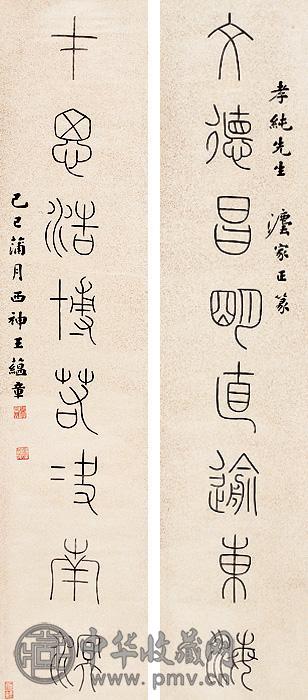 孝純先生 灋家正篆
文德昌明直逾東海
才思浩博若決南溟
己巳蒲月西神王蘊章
中华收藏网
www.pmv.cn